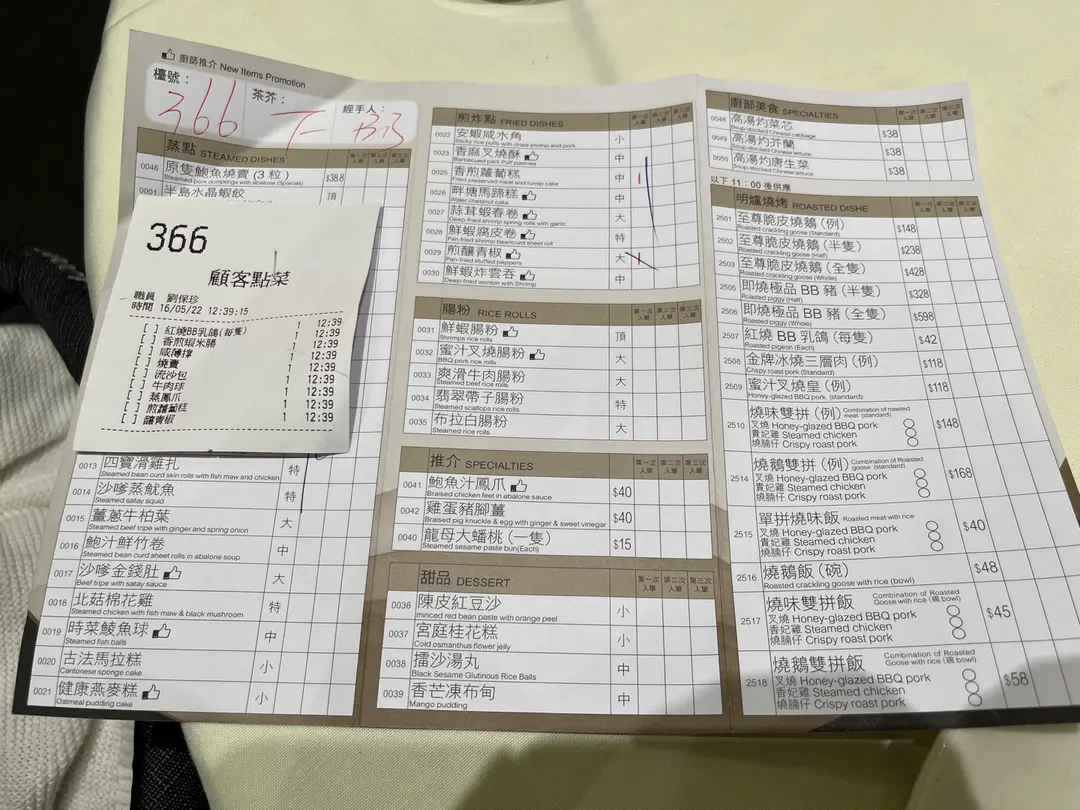 廚師推介 New Items Promotion
檯號： 茶芥： 經手人：
366
蒸點 STEAMED DISHES 第一次入單 第二次入單 第三次入單
0046 原隻鮑魚燒賣（3 粒） $38.8
Steamed pork dumplings with abalone (3pieces)
0001 半島水晶蝦餃 頂
366
顧客點菜
職員 劉保珍
時間 16/05/22 12:39:15
[ ] 紅燒BB乳鴿(每隻) 1 12:39
[ ] 香煎蝦米腸 1 12:39
[ ] 咸薄撑 1 12:39
[ ] 燒賣 1 12:39
[ ] 流沙包 1 12:39
[ ] 牛肉球 1 12:39
[ ] 蒸鳳爪 1 12:39
[ ] 煎蘿蔔糕 1 12:39
[ ] 釀青椒 1 12:39
0013 四寶滑雞扎 特
Steamed bean curd skin rolls with fish maw and chicken
0014 沙嗲蒸魷魚 特
Steamed satay squid
0015 薑蔥牛柏葉 大
Steamed beef tripe with ginger and spring onion
0016 鮑汁鮮竹卷 中
Steamed bean curd sheet rolls in abalone soup
0017 沙嗲金錢肚 大
Beef tripe with satay sauce
0018 北菇棉花雞 特
Steamed chicken with fish maw & black mushroom
0019 時菜鯪魚球 中
Steamed fish balls
0020 古法馬拉糕 小
Cantonese sponge cake
0021 健康燕麥糕 小
Oatmeal pudding cake
煎炸點 FRIED DISHES 第一次入單 第二次入單 第三次入單
0022 安蝦咸水角 小
Sticky rice puffs with dried shrimp and pork
0023 香麻叉燒酥 中
Barbecued park Puff pastries
0025 香煎蘿蔔糕 中
Fried preserved meat and turnip cake
0026 畔塘馬蹄糕 中
Water chestnut cake
0027 蒜茸蝦春卷 大
Deep-fried shrimp spring rolls with garlic
0028 鮮蝦腐皮卷 特
Pan fried shrimp beancurd sheet roll
0029 煎釀青椒 大
Pan-fried stuffed peppers
0030 鮮蝦炸雲吞 中
Deep-fried wonton with Shrimp
腸粉 RICE ROLLS 第一次入單 第二次入單 第三次入單
0031 鮮蝦腸粉 頂
Shrimps rice rolls
0032 蜜汁叉燒腸粉 大
BBQ pork rice rolls
0033 爽滑牛肉腸粉 大
Steamed beef rice rolls
0034 翡翠帶子腸粉 特
Steamed scallops rice rolls
0035 布拉白腸粉 大
Steamed rice rolls
推介 SPECIALTIES 第一次入單 第二次入單 第三次入單
0041 鮑魚汁鳳爪 $40
Braised chicken feet in abalone sauce
0042 雞蛋豬腳薑 $40
Braised pig knuckle & egg with ginger & sweet vinegar
0040 龍母大蟠桃（一隻） $15
Steamed sesame paste bun(Each)
甜品 DESSERT 第一次入單 第二次入單 第三次入單
0036 陳皮紅豆沙 小
minced red bean paste with orange peel
0037 宮庭桂花糕 小
Cold osmanthus flower jelly
0038 擂沙湯丸 中
Black Sesame Glutinous Rice Balls
0039 香芒凍布甸 中
Mango pudding
廚部美食 SPECIALTIES 第一次入單 第二次入單 第三次入單
0048 高湯灼菜芯 $38
Soup-stocked Chinese cabbage
0049 高湯灼芥蘭 $38
Soup-stocked Chinese lettuce
0050 高湯灼唐生菜 $38
Soup-stocked Chinese lettuce
以下 11：00 後供應
明爐燒烤 ROASTED DISHE 第一次入單 第二次入單 第三次入單
2501 至尊脆皮燒鵝（例） $148
Roasted crackling goose (Standard)
2502 至尊脆皮燒鵝（半隻） $238
Roasted crackling goose (Half)
2503 至尊脆皮燒鵝（全隻） $428
Roasted crackling goose (Whole)
2505 即燒極品 BB 豬（半隻） $328
Roasted piggy (Half)
2506 即燒極品 BB 豬（全隻） $598
Roasted piggy (Whole)
2507 紅燒 BB 乳鴿（每隻） $42
Roasted pigeon (Each)
2508 金牌冰燒三層肉（例） $118
Crispy roast pork (Standard)
2509 蜜汁叉燒皇（例） $118
Honey-glazed BBQ pork (standard)
2510 燒味雙拼（例） Combination of roasted meat (standard) $148
叉燒 Honey-glazed BBQ pork
貴妃雞 Steamed chicken
燒腩仔 Crispy roast pork
2514 燒鵝雙拼（例） Combination of Roasted goose (standard) $168
叉燒 Honey-glazed BBQ pork
貴妃雞 Steamed chicken
燒腩仔 Crispy roast pork
2515 單拼燒味飯 Roasted meat with rice $40
叉燒 Honey-glazed BBQ pork
貴妃雞 Steamed chicken
燒腩仔 Crispy roast pork
2516 燒鵝飯（碗） $48
Roasted crackling goose with rice (bowl)
2517 燒味雙拼飯 Combination of Roasted Goose with rice (碗 bowl) $45
叉燒 Honey-glazed BBQ pork
香妃雞 Steamed chicken
燒腩仔 Crispy roast pork
2518 燒鵝雙拼飯 Combination of Roasted Goose with rice (碗 bowl) $58
叉燒 Honey-glazed BBQ pork
香妃雞 Steamed chicken
燒腩仔 Crispy roast pork